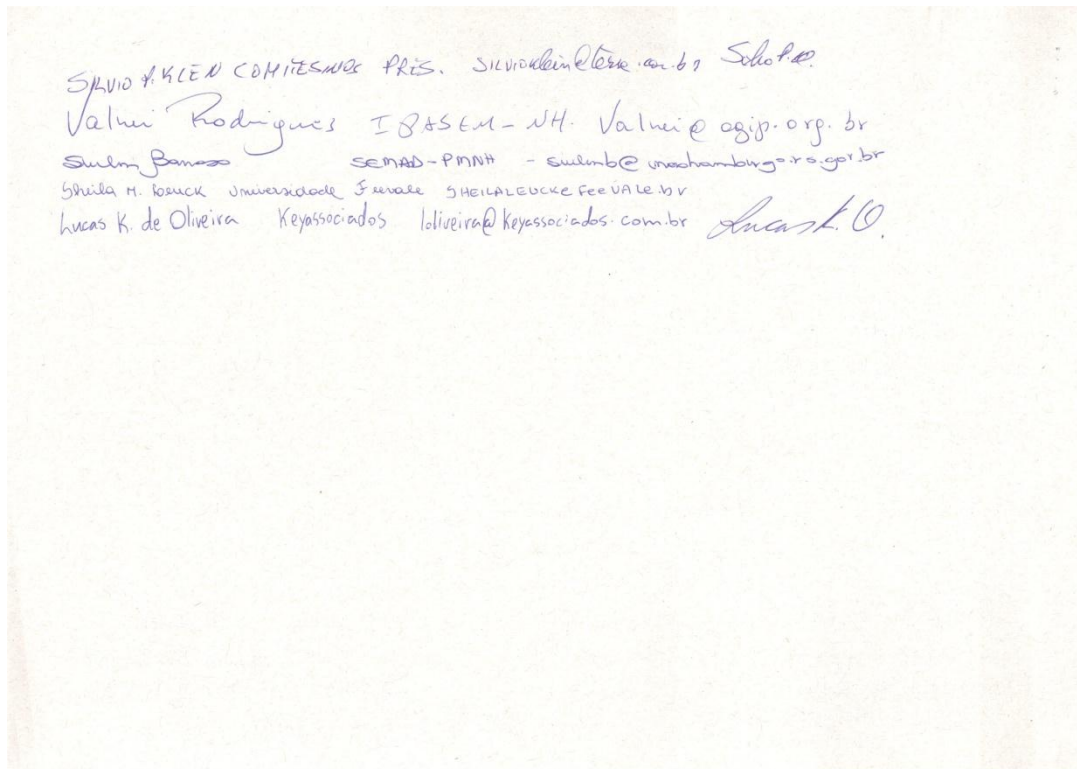 SILVIO P. KLEIN COMITESINOS PRES. silvioklein@terra.com.br
Valnei Rodrigues IPASEM-NH. Valnei@agip.org.br
SEMAD-PMNH - suelenb@novohamburgo.rs.gov.br
Sheila M. Leuck Universidade Feevale SHEILALEUCK@FEEVALE.br
Lucas K. de Oliveira Keyassociados loliveira@keyassociados.com.br Lucas K. O.